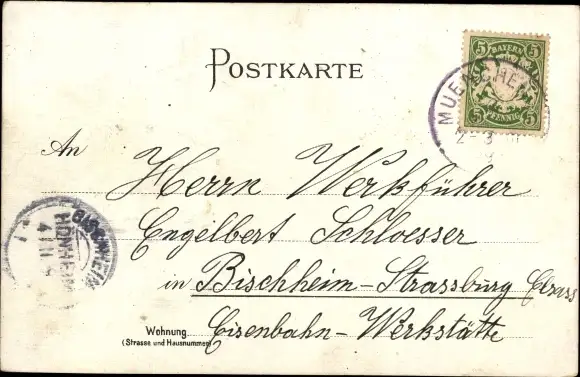 POSTKARTE
5 BAYERN 5
5 PFENNIG 5
MUENCHEN
An Herrn Werkführer
Engelbert Schloesser
in Bischheim-Strassburg Elsass
Eisenbahn-Werkstätte
Wohnung
(Strasse und Hausnummer)
BISCHHEIM
HÖNHEIM